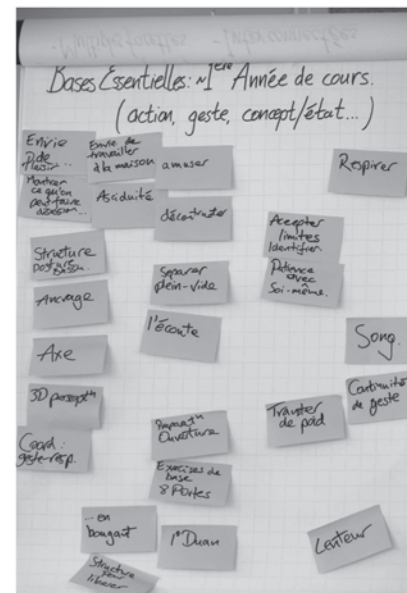 - Multiples facettes - Interconnectées
Bases Essentielles: ~1ère Année de cours.
(action, geste, concept/état...)
Envie
de
plaisir...
Envie de
travailler
à la maison
amuser
Respirer
Montrer
ce qu'on
peut faire
Asciduité
décontracter
Accepter
limites
Identifier.
Structure
posture
Séparer
plein-vide
Patience
avec
Soi-même.
Ancrage
l'écoute
Song.
Axe
3D percept°
Continuité
de geste
Transfer
de poid
Préparat°
Ouverture
Coord:
geste-resp.
Exercices de
base
8 Portes
... en
bougeant
1° Duan
Lenteur
Structure
pour
libérer